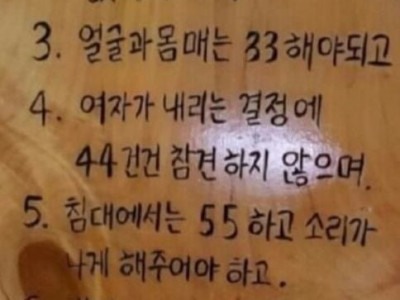 3. 얼굴과 몸매는 33해야되고
4. 여자가 내리는 결정에
44건건 참견하지 않으며.
5. 침대에서는 55하고 소리가
나게 해주어야 하고.